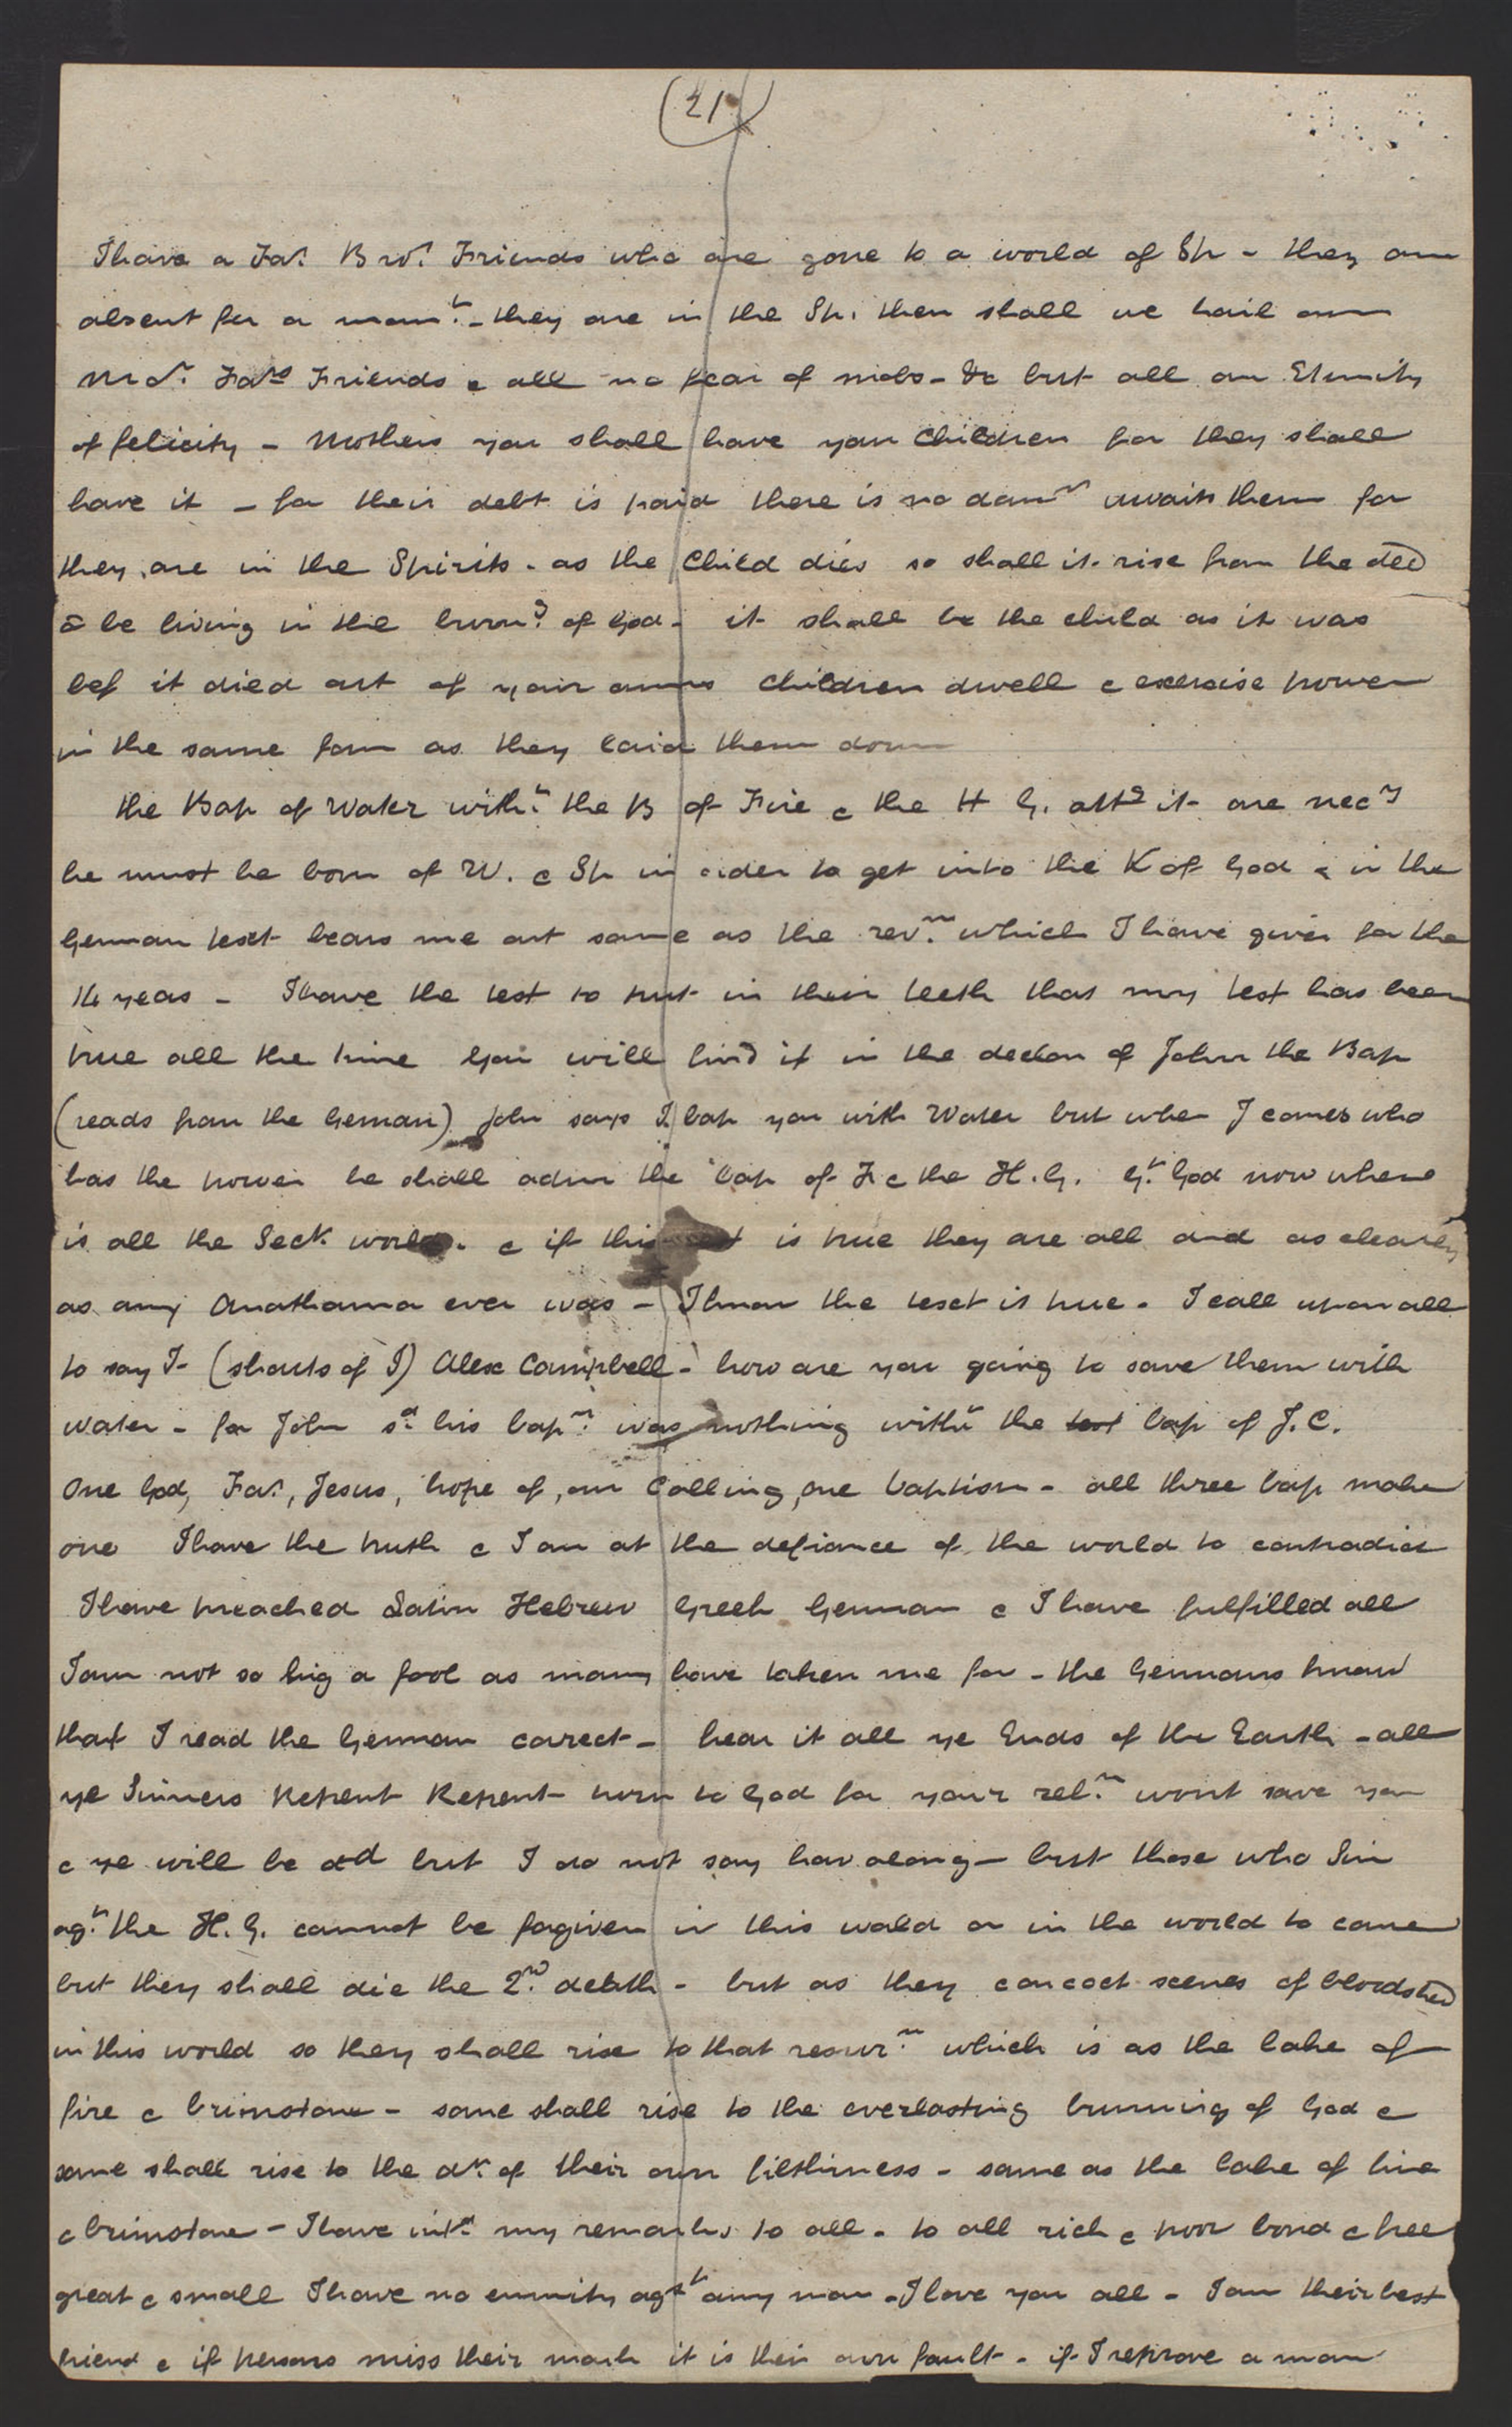 (21)
I have a Fa.r Bro.r Friends who are gone to a world of Sp - they are
absent for a mom.t - they are in the Sp. then shall we hail our
Mo.r Fa.rs Friends & all no fear of mobs - &c but all an Eternity
of felicity - Mothers you shall have your Children for they shall
have it - for their debt is paid there is no damn awaits them for
they are in the Spirits - as the Child dies so shall it rise from the ded
& be living in the burn.g of God - it shall be the child as it was
bef it died out of your arms Children dwell & exercise power
in the same form as they laid them down
the Bap of Water with.t the B of Fire & the H G. attg it are necy
he must be born of W. & Sp in order to get into the K of God & in the
German text bears me out same as the rev.n which I have given for the
14 years - I have the test to put in their teeth that my test has been
true all the time You will find it in the declon of John the Bap
(reads from the German) John says I bap you with Water but when J comes who
has the power he shall adm the bap of F & the H. G. Gt. God now where
is all the Sect. world. & if this is true they are all and as clearly
as any Anathama ever was - I know the text is true. I call upon all
to say I - (shouts of I) Alex Campbell - how are you going to save them with
water - for John sd. his bap.n was nothing witht the test bap of J. C.
One God, Fa.r, Jesus, hope of, our Calling, one baptism - all three bap make
one I have the truth & I am at the defiance of the world to contradict
I have preached Latin Hebrew Greek German & I have fulfilled all
I am not so big a fool as many have taken me for - the Germans know
that I read the German corect - hear it all ye Ends of the Earth - all
ye Sinners Repent Repent turn to God for your rel.n wont save you
& ye will be dd but I do not say how along - but those who Sin
ag.t the H. G. cannot be forgiven in this world or in the world to come
but they shall die the 2.nd death - but as they concoct scenes of bloodshed
in this world so they shall rise to that resur.n which is as the lake of
fire & brimstone - some shall rise to the everlasting burning of God &
some shall rise to the dn. of their own filthiness - same as the lake of fire
& brimstone - I have intd my remarks to all - to all rich & poor bond & free
great & small I have no enmity agst any man - I love you all - I am their best
friend & if persons miss their mark it is their own fault - if I reprove a man